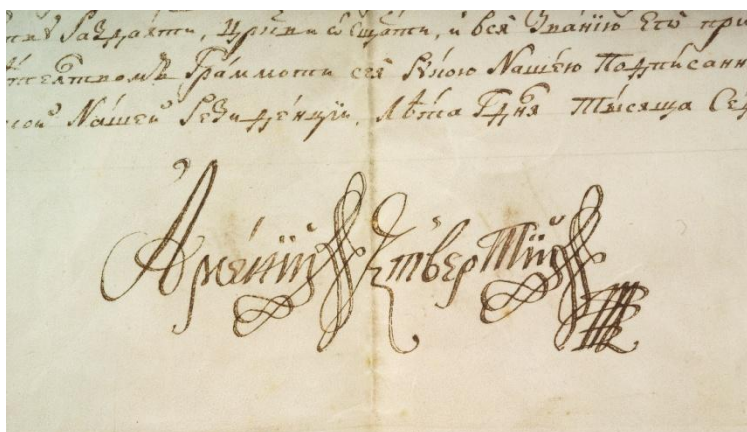 Раздаѧти, Цркви ѡсщати, и всѧ Званїю Егѡ при
Граммоти сеѧ Рꙋкою Нашею Подписанн
Нашей Резиденцїи, Лѣта Гднѧ Тысѧща Сед
Арсенїй Четвертїй